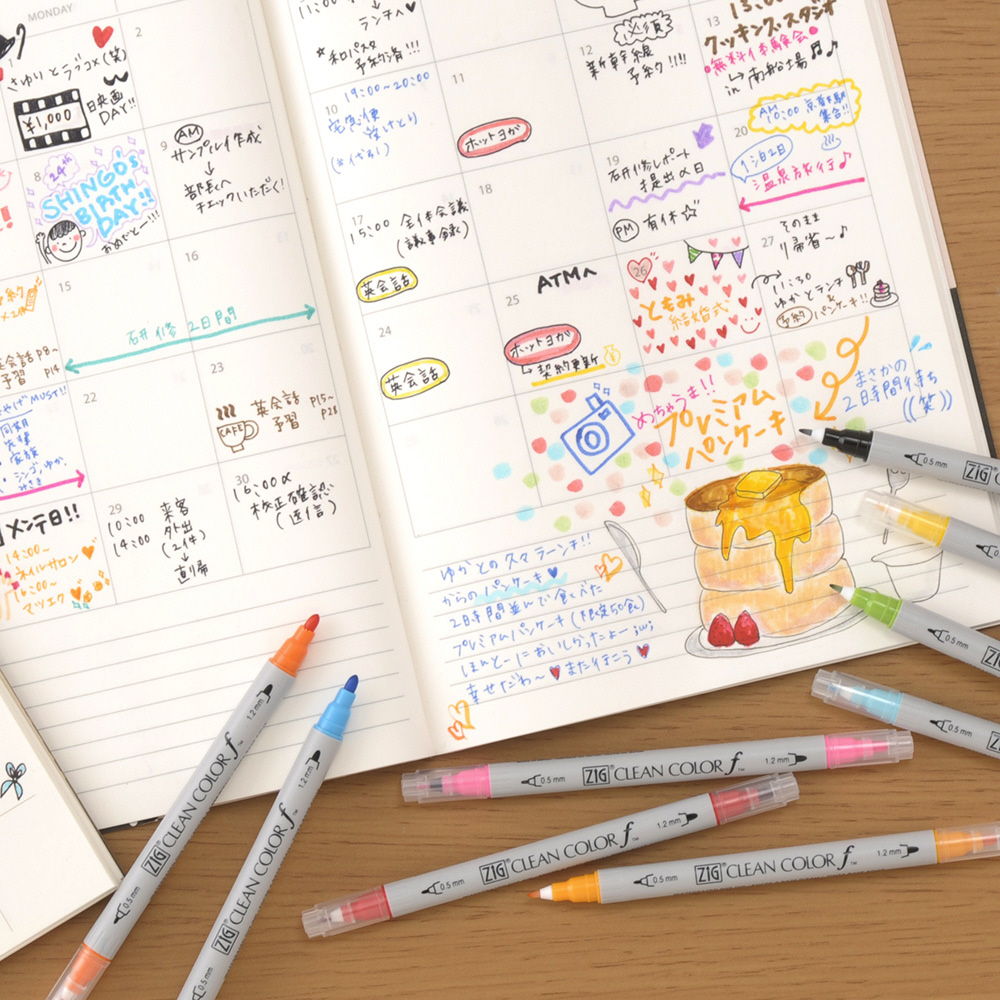 MONDAY
2
さゆりとラブコメ(笑)
¥1,000
日映画
DAY!!
8
24th
SHINGO'S
BIRTH
DAY!!
おめでとー!!!
9
AM
サンプル作成
↓
部長へ
チェックいただく!
15
16
石井修 2日間
英会話 P8~
予習 P14
22
23
CAFE
英会話 P15~
予習 P28
メンテ日!!
14:00~
ネイルサロン
16:00~
マツエク
29
10:00 来客
14:00 外出
(2件)
↓
直帰
30
16:00〆
校正確認
(返信)
11:00
ランチへ♥
☆和パスタ
予約済!!!
10
19:00~20:00
宅急便
受けとり
(※代引)
11
ホットヨガ
12
必須
新幹線
予約!!!!
13
13:00~
クッキングスタジオ
無料体験会
in 南船場♪♬
17
15:00 全体会議
(議事録)
英会話
18
19
石井修レポート
提出〆日
PM 有休☆
20
AM
10:00 京都駅
集合!!
1泊2日
温泉旅行♪
24
英会話
25
ATMへ
ホットヨガ
契約更新
26
ともみ
結婚式
27
そのまま
帰省~♪
11:30
ゆかとランチ
予約 パンケーキ!!
めちゃうま!!
プレミアム
パンケーキ
まさかの
2時間待ち
((笑))
ゆかとの久々ランチ!!
からのパンケーキ♥
2時間並んで食べた
プレミアムパンケーキ(限定50食)
ほんとーにおいしかったよー
幸せだわ~♥また行こう♥
1.2mm
ZIG CLEAN COLOR f™
0.5mm
1.2mm
ZIG CLEAN COLOR f™
0.5mm
0.5mm ZIG® CLEAN COLOR f™ 1.2mm
0.5mm ZIG® CLEAN COLOR f™ 1.2mm
0.5mm ZIG® CLEAN COLOR f™ 1.2mm
0.5mm ZIG
0.5mm
0.5mm
0.5mm